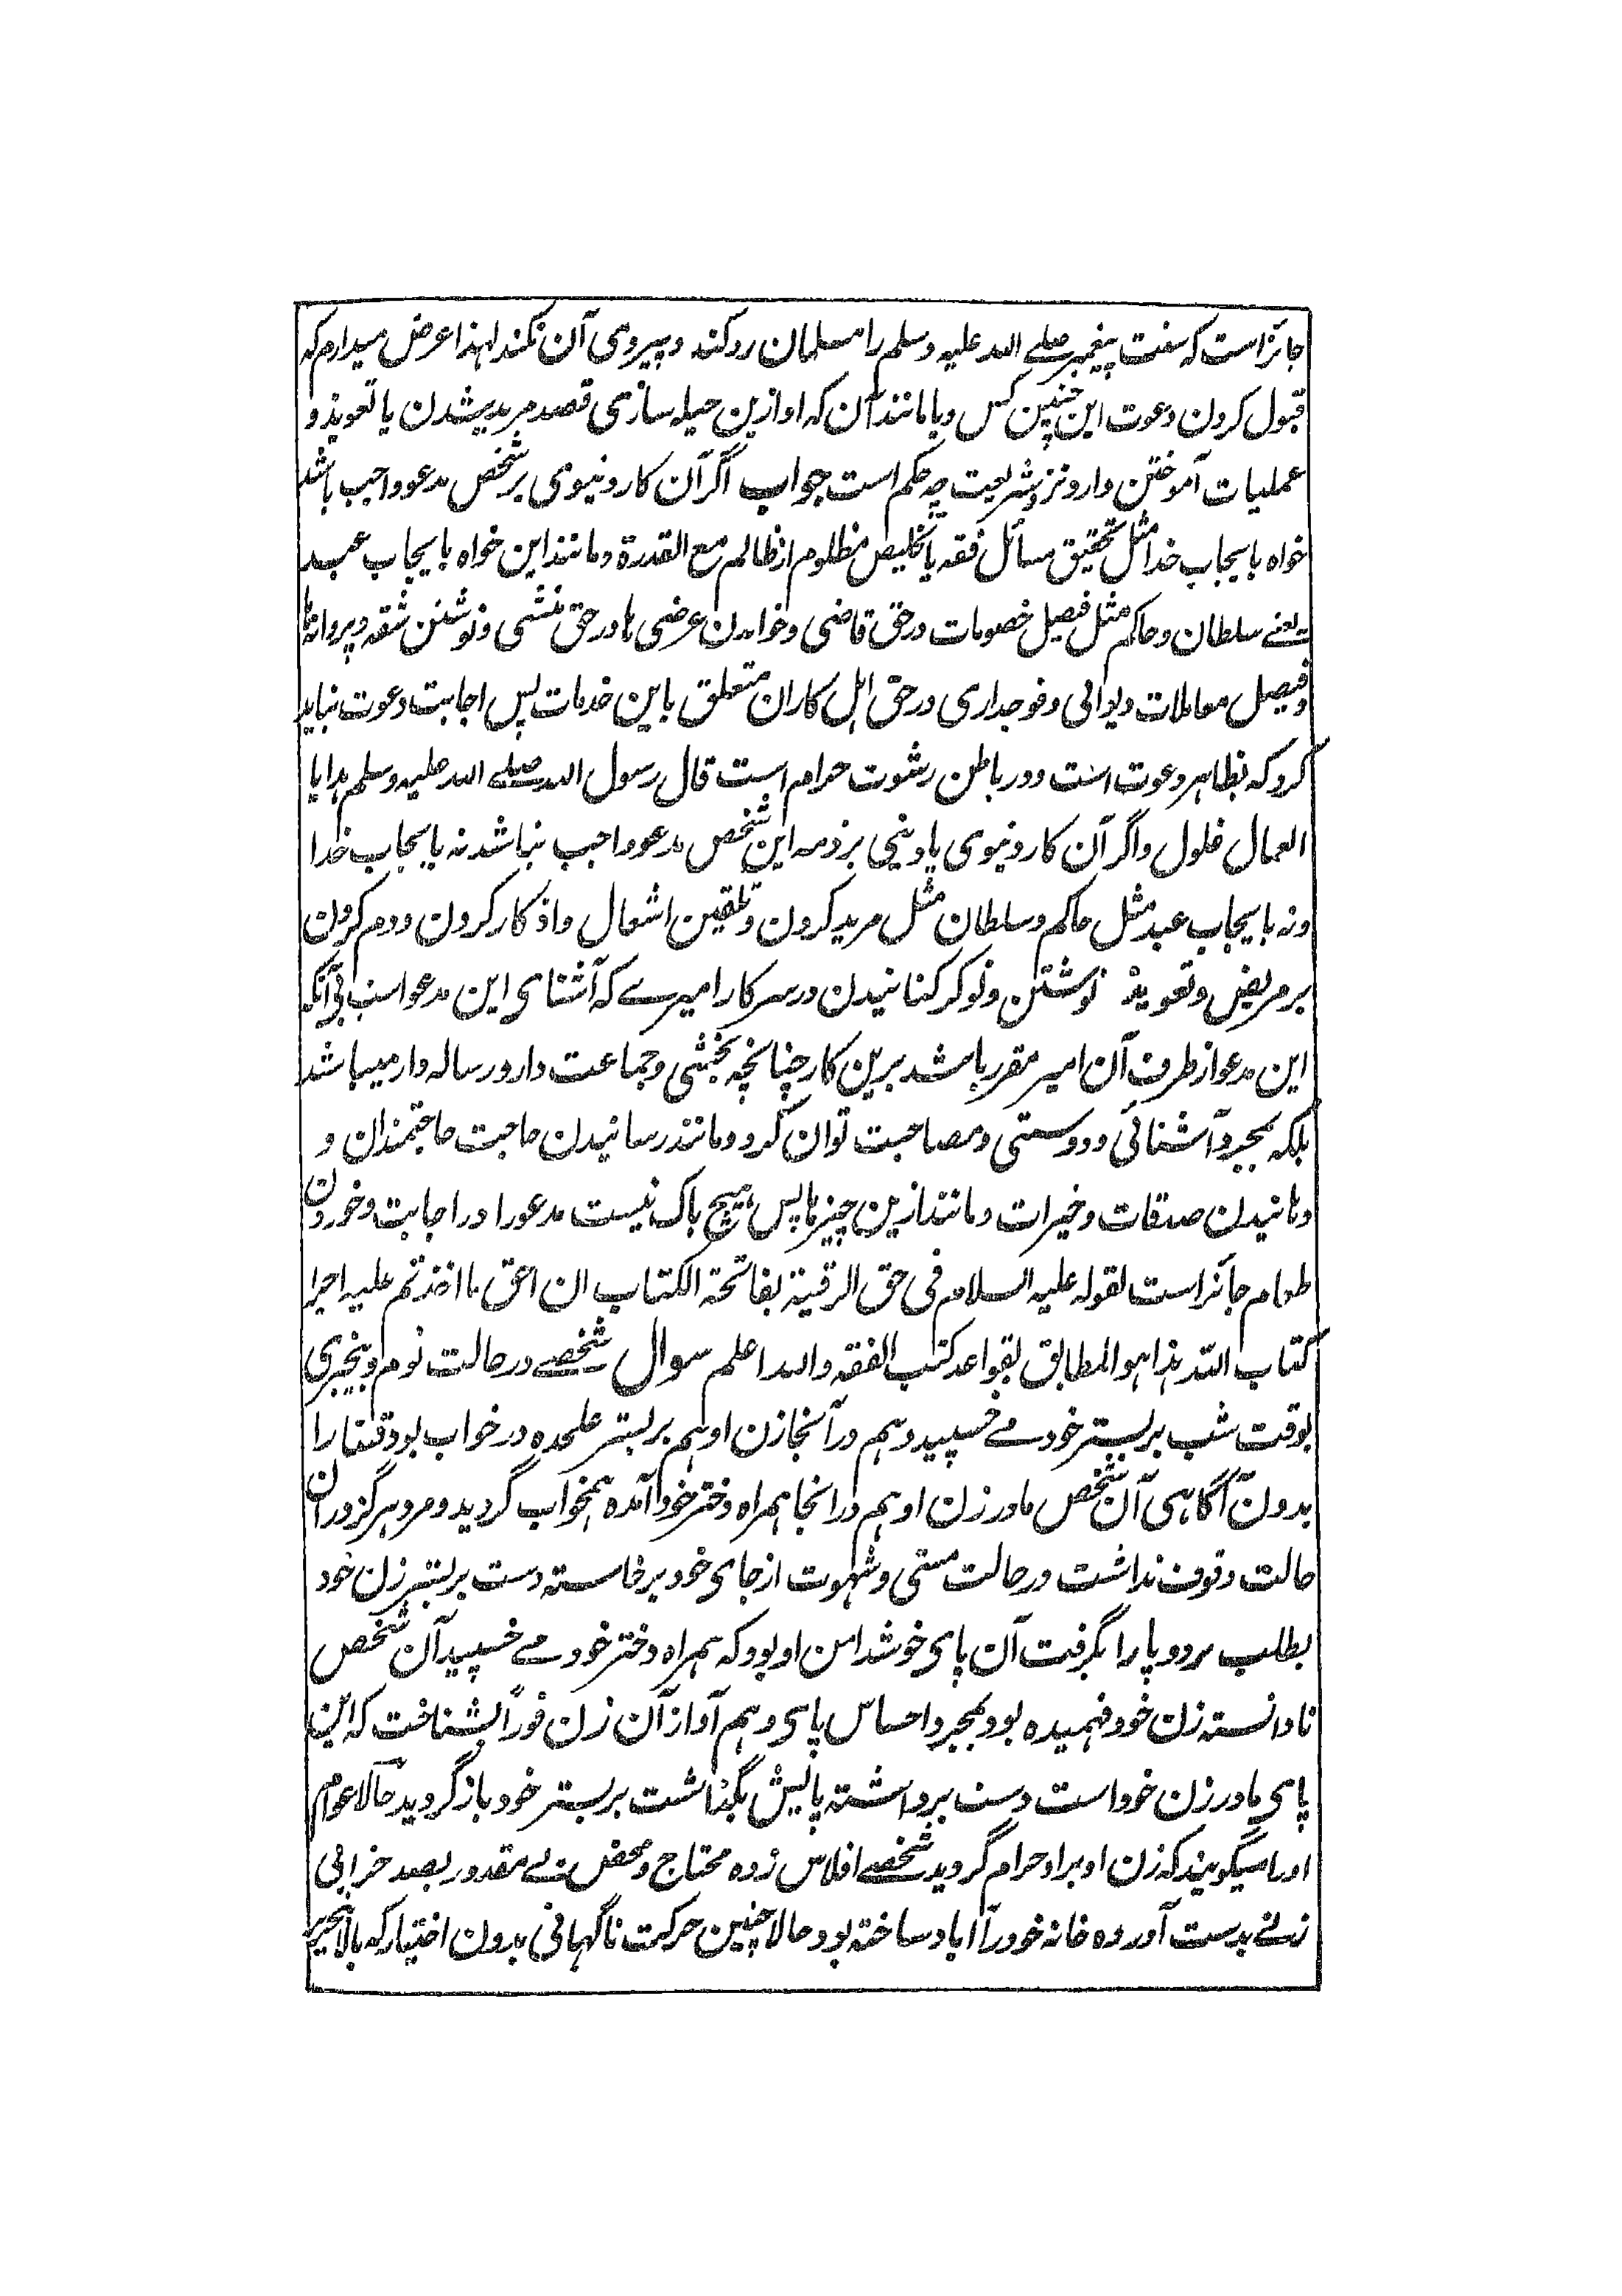 جائز است که سنت پیغمبر صلے الله علیه وسلم را مسلمان رد کند و پیروی آن نکند لهذا عرض میدارم که
قبول کردن دعوت این چنین کس و یا مانند آن که او ازین حیله سازی قصد مرید شدن یا تعویذ و
عملیات آموختن دارد نزد شریعت چه حکم است جواب اگر آن کار دنیوی بر شخص مدعو واجب باشد
خواه بایجاب خدا مثل تحقیق مسائل فقه یا تخلیص مظلوم از ظالم مع القدرة و مانند این خواه بایجاب عبد
یعنے سلطان و حاکم مثل فیصل خصومات در حق قاضی و خواندن عرضی ها در حق منشی و نوشتن شقه و پروانه ها
و فیصل معاملات دیوانی و فوجداری در حق اهل کاران متعلق باین خدمات پس اجابت دعوت نباید
کرد که بظاهر دعوت است و در باطن رشوت حرام است قال رسول الله صلے الله علیه وسلم هدایا
العمال غلول و اگر آن کار دنیوی یا دینی بر ذمه این شخص مدعو واجب نباشد نه بایجاب خدا
و نه بایجاب عبد مثل حاکم و سلطان مثل مرید کردن و تلقین اشغال و اذکار کردن و دم کردن
بر مریض و تعویذ نوشتن و نوکر کنانیدن در سرکار امیرے که آشنای این مدعو است بی آنکه
این مدعو از طرف آن امیر مقرر باشد برین کار چنانچه بخشی و جماعت دار و رساله دار میباشد
بلکه بمجرد آشنائی و دوستی و مصاحبت توان کرد و مانند رسانیدن حاجت حاجتمندان و
دهانیدن صدقات و خیرات و مانند ازین چیزها پس هیچ باک نیست مدعو را در اجابت و خوردن
طعام جائز است لقوله علیه السلام فی حق الرقیة بفاتحة الکتاب ان احق ما اخذتم علیه اجرا
کتاب الله هذا هو المطابق لقواعد کتب الفقه والله اعلم سوال شخصے در حالت نوم و بیخبری
بوقت شب بر بستر خود مے خسپید و هم در آنجا زن او هم بر بستر علحده در خواب بود قضارا
بدون آگاهی آن شخص مادر زن او هم در انجا همراه دختر خود آمده همخواب گردید و مرد هرگز در ان
حالت وقوف نداشت در حالت مستی و شهوت از جای خود برخاسته دست بر بستر زن خود
بطلب هر دو پا را بگرفت آن پای خوشدامن او بود که همراه دختر خود مے خسپید آن شخص
نادانسته زن خود فهمیده بود بمجرد احساس پای و هم آواز آن زن فوراً بشناخت که این
پای مادر زن خود است دست برداشته پایش بگذاشت بر بستر خود باز گردید حالا عوام
او را میگویند که زن او برو حرام گردید شخصے افلاس زده محتاج و محض بے مقدور بصد خرابی
زنے بدست آورده خانه خود را آباد ساخته بود حالا چنین حرکت ناگهانی بدون اختیار که بالا تحریر